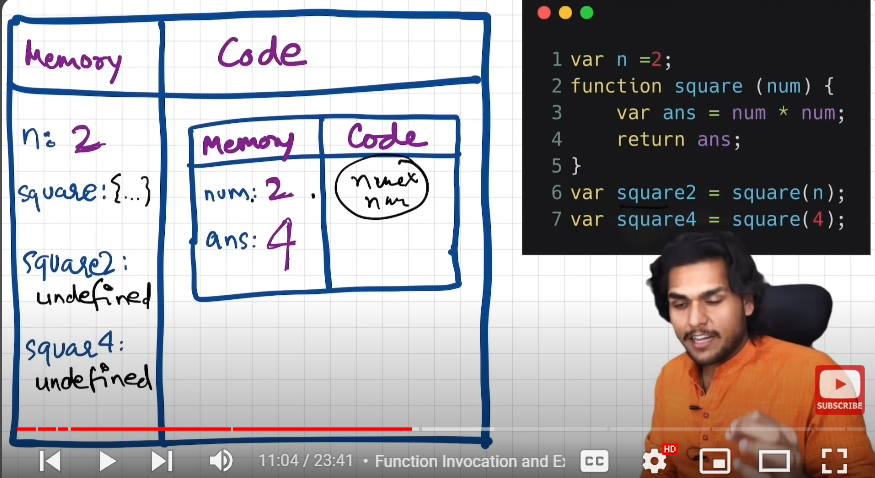 Memory
Code
n: 2
square: {...}
square2:
undefined
squar4:
undefined
Memory
Code
num: 2
num x
num
ans: 4
1 var n =2;
2 function square (num) {
3     var ans = num * num;
4     return ans;
5 }
6 var square2 = square(n);
7 var square4 = square(4);
SUBSCRIBE
11:04 / 23:41 • Function Invocation and Ex
CC
HD